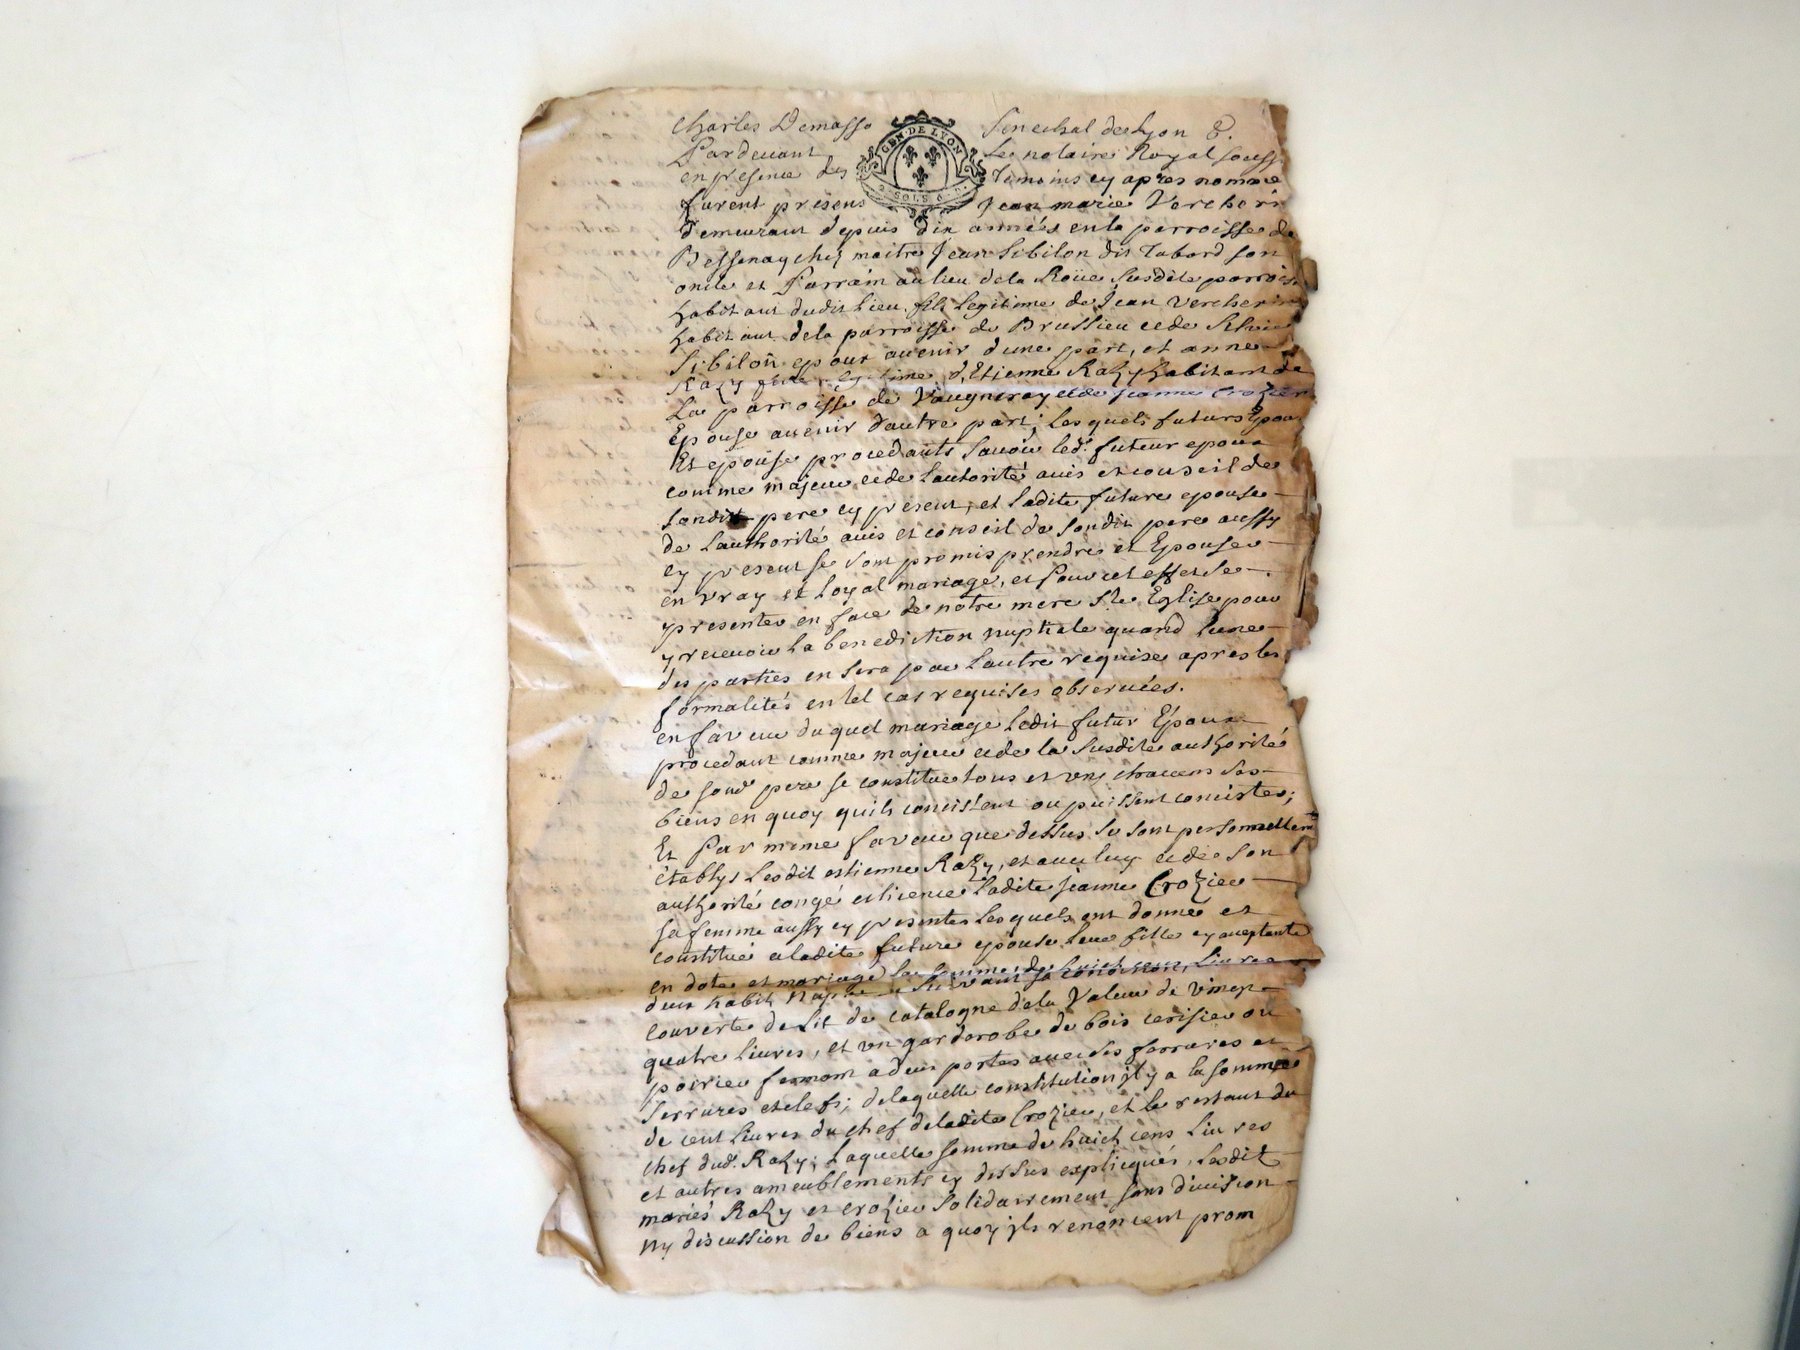 Charles Demasso Senechal de Lyon &.
GEN·DE LYON
Pardevant Le notaire Royal souss
en presence des temoins cy apres nomme
SOLS
furent presens Jean marie Vercheri
demeurant depuis dix années en la parroisse de
Bessenay chez maitre Jean Sibilon dit Tabord son
oncle et Parrain au lieu de la Roüe susdite parrois
habitant dudit lieu fils legitime de Jean Vercherin
habitant de la parroisse de Brussieu et de
Sibilon epoux avenir d'une part, et anne
Razy fille legitime d'Etienne Razy habitant de
La parroisse de Vaugneray et de jeanne Crozier
Epouse avenir d'autre part; Lesquels futurs Epoux
Et epouse procedants savoir led. futeur epoux
comme majeur et de l'autorité avis et conseil de
sondit pere cy present, et ladite future epouse
de l'authorité avis et conseil de sondit pere aussy
cy present se sont promis prendre et Epouser
en vray et Loyal mariage, et pour cet effet se
presenter en face de notre mere ste Eglise pour
y recevoir La benediction nuptiale quand l'une
des parties en sera par l'autre requise apres les
formalités en tel cas requises observées.
en faveur duquel mariage Ledit futur Epoux
procedant comme majeur et de la susdite authorité
de sond pere se constitue tous et uns chacuns ses
biens en quoy qu'ils concistent ou puissent concister;
Et Par meme faveur que dessus se sont personnellemt
établys Ledit estienne Razy, et avec luy et de son
authorité congé et licence Ladite jeanne Crozier
sa femme aussy cy presente Lesquels ont donné et
constitué a ladite future epouse leur fille cy acceptante
en dote et mariage la somme de huict cens Livres
deux habits suivant sa condition,
couverte de lit de catalogne de la Valeur de vingt
quatre Livres, et un garderobe de bois cerisier ou
poirier fermant a deux portes avec ses ferrures et
serrures et clefs; de laquelle constitution il y a la somme
de cent Livres du chef de ladite Crozier, et le restant du
chef dud. Razy; Laquelle somme de huict cens Livres
et autres ameublements cy dessus explicqués, Lesdit
mariés Razy et Crozier solidairement sans division
ny discussion de biens a quoy ils renoncent prom